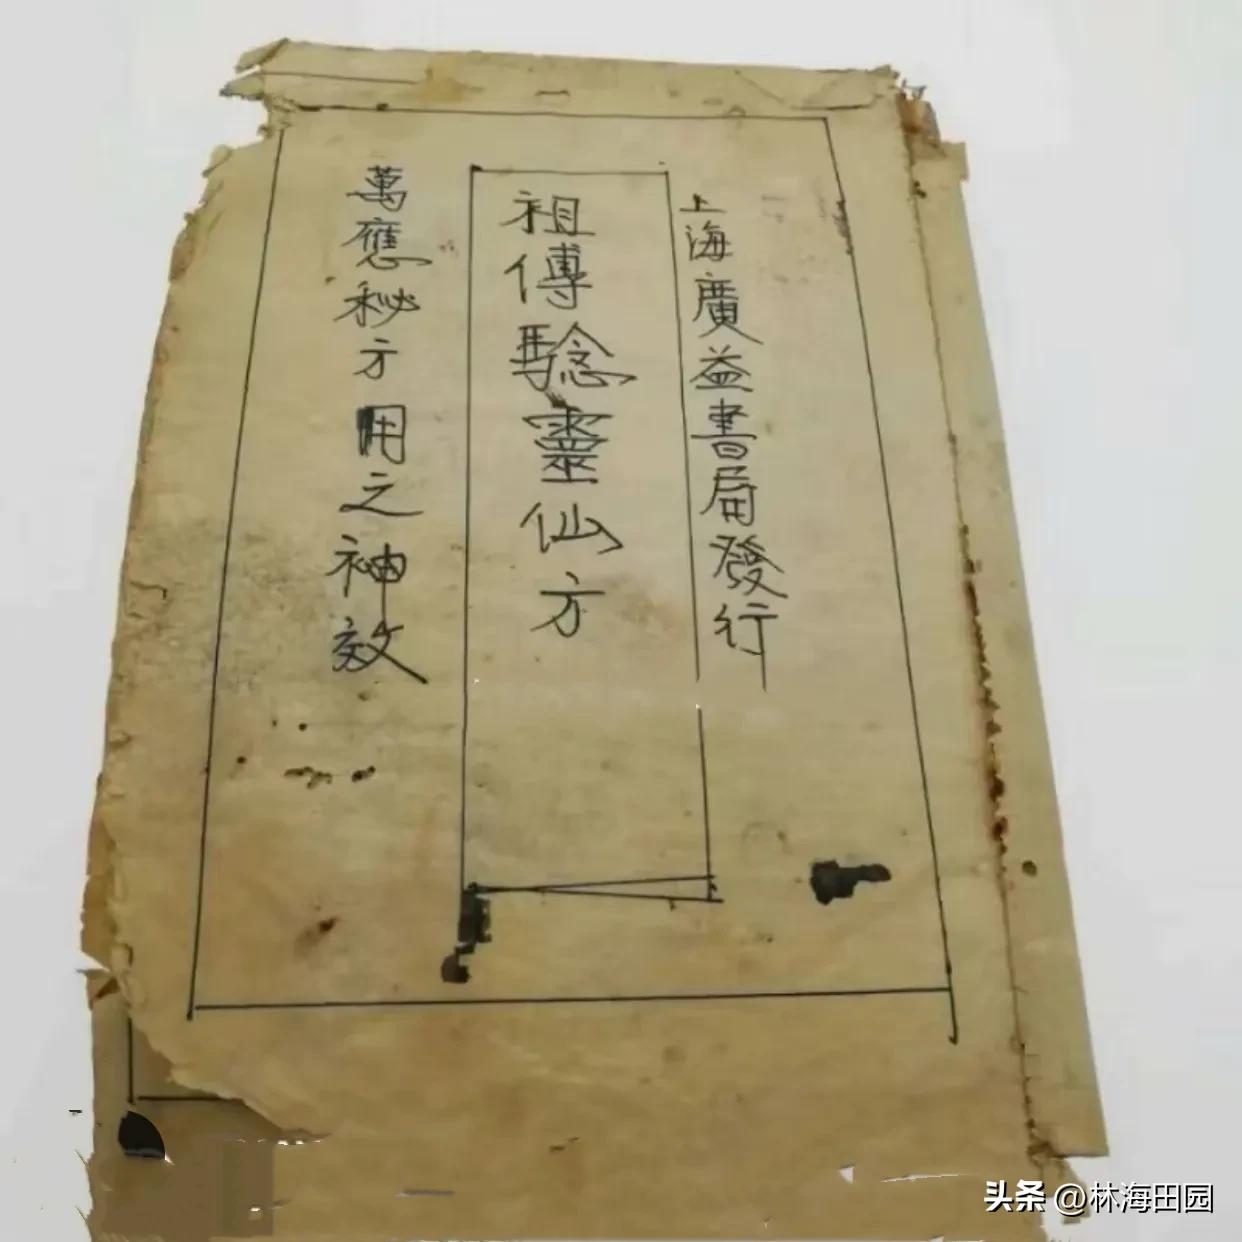 上海廣益書局發行
祖傳騐靈仙方
萬應秘方用之神效
头条 @林海田园